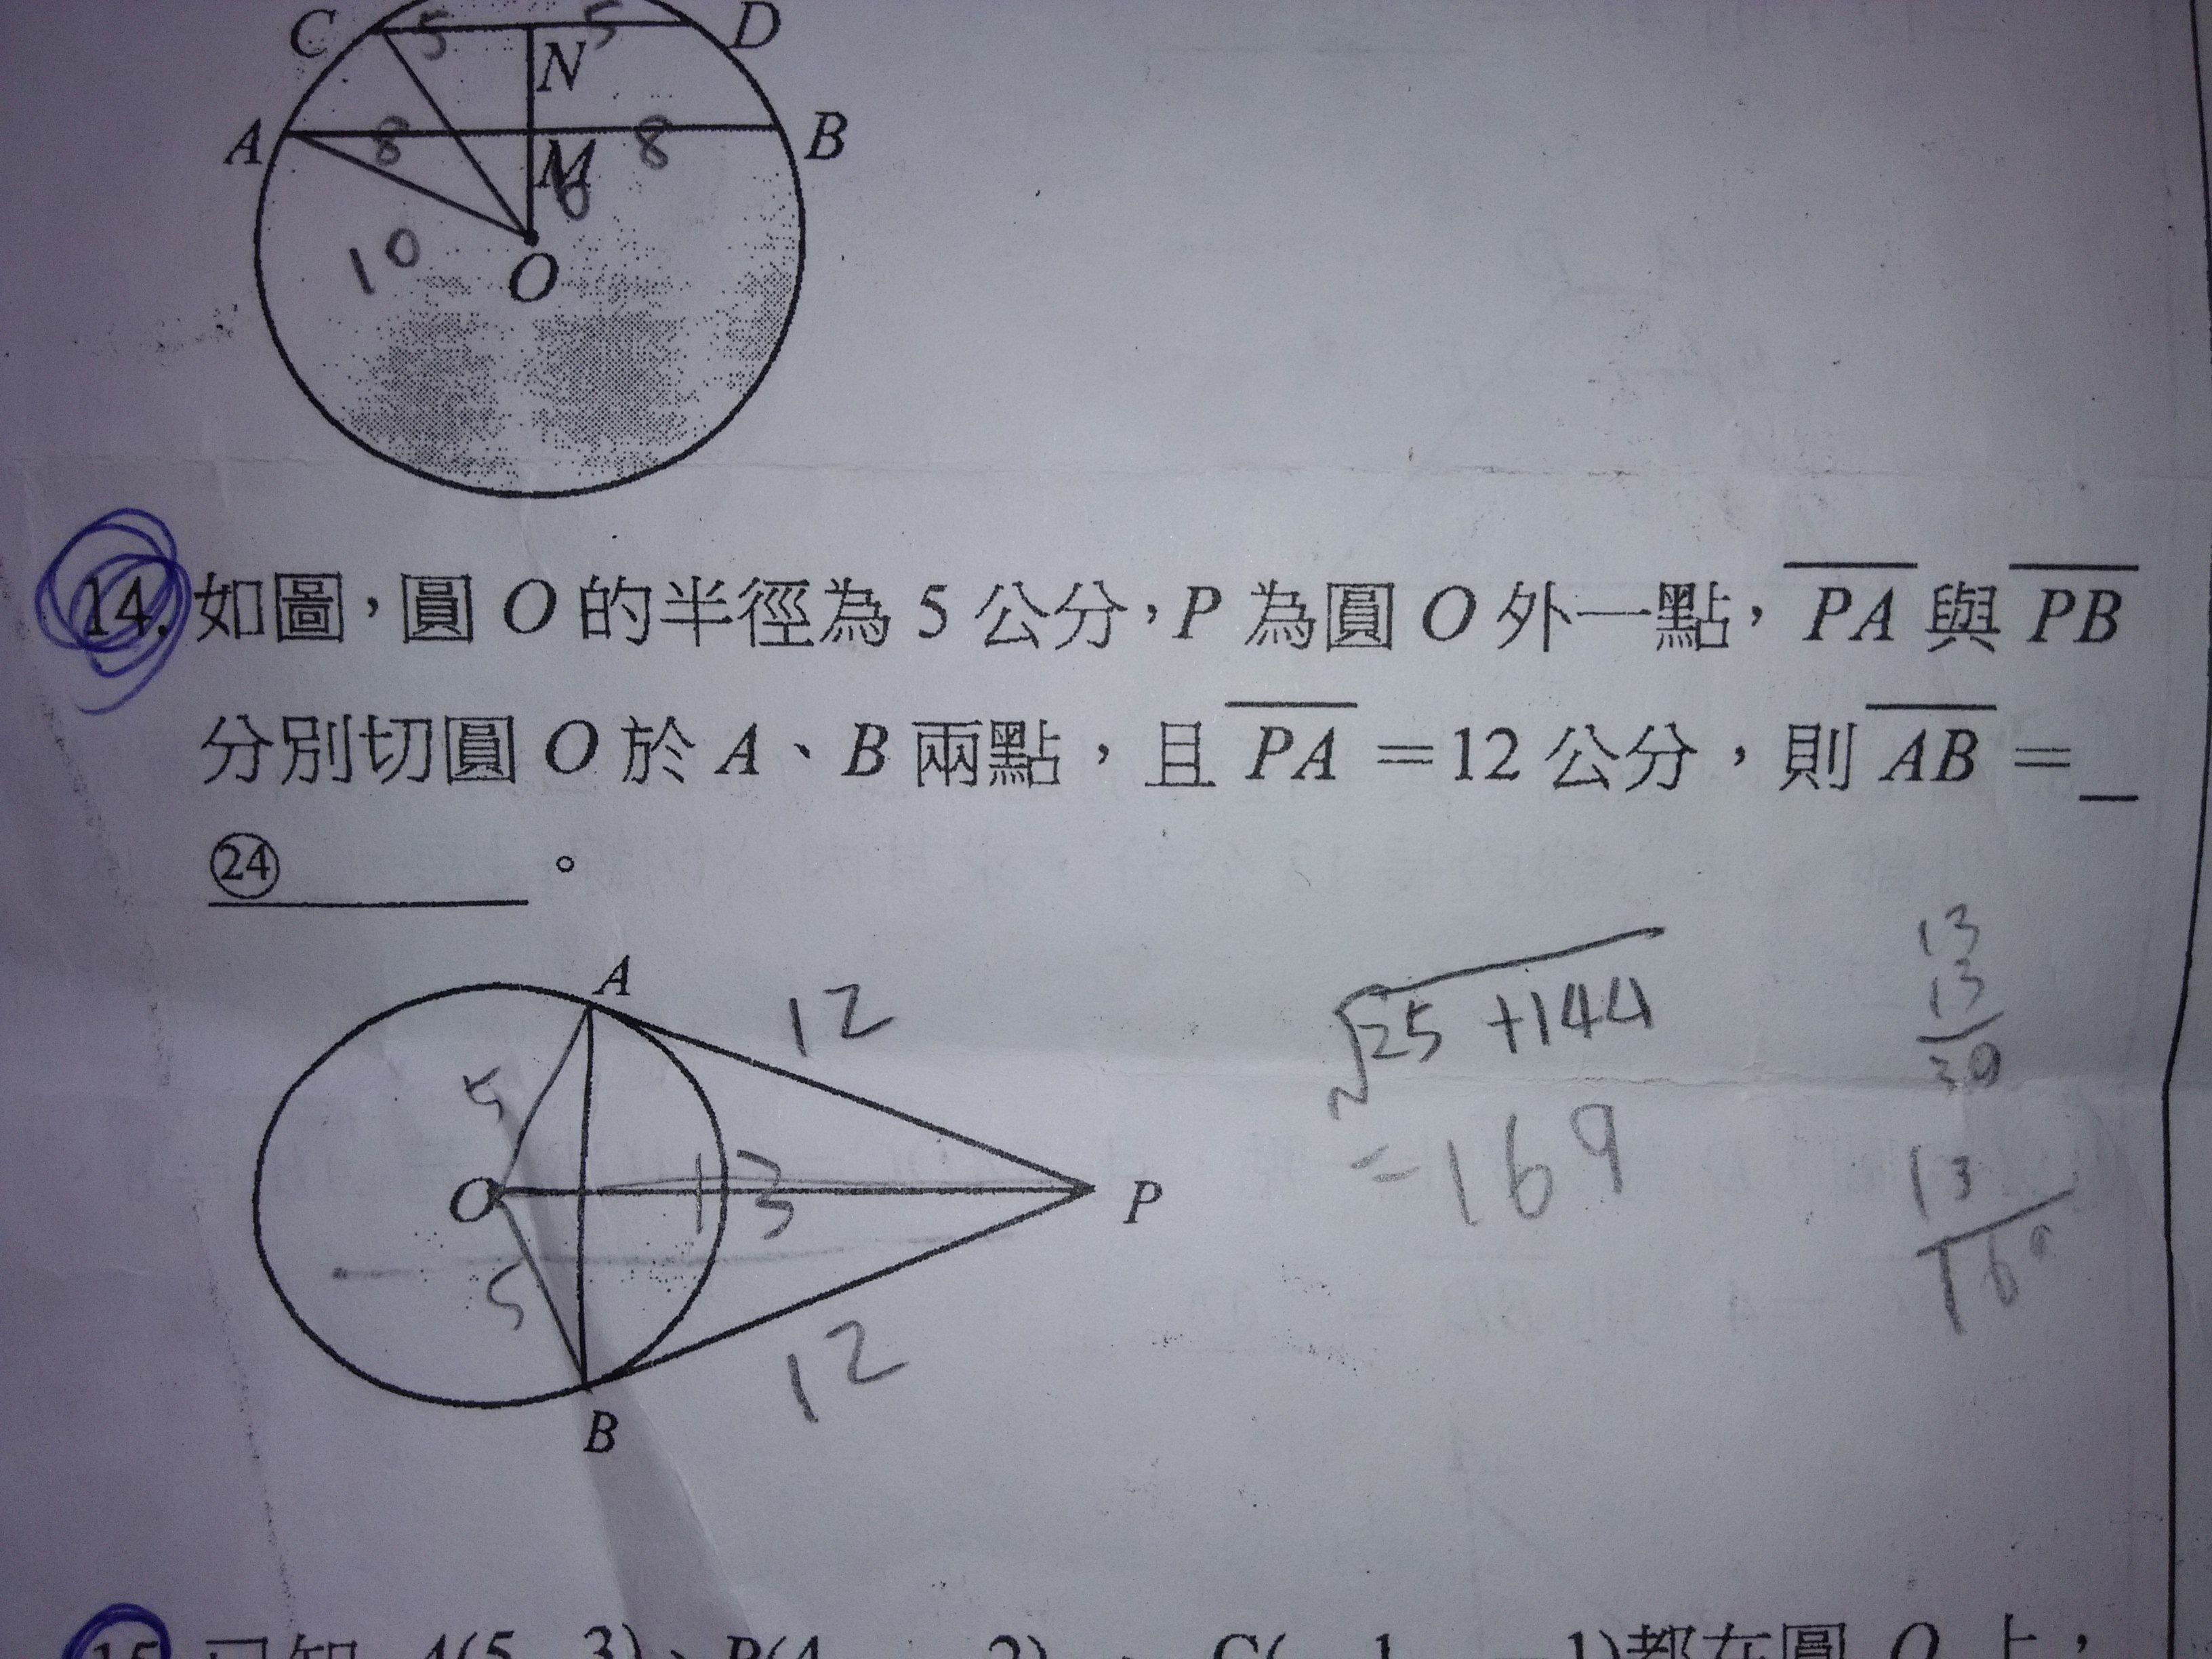 C 5 5 D
N
A 8 8 B
M
6
10
O
14. 如圖，圓 O 的半徑為 5 公分，P 為圓 O 外一點，PA 與 PB
分別切圓 O 於 A、B 兩點，且 PA =12 公分，則 AB =
㉔ 。
A
12
5
O 13 P
5
12
B
√25 +144
= 169
13
13
39
13
169
15. 已知 A(5 , 3)、B(4 , 2)、C( 1 , -1)都在圓 O 上，